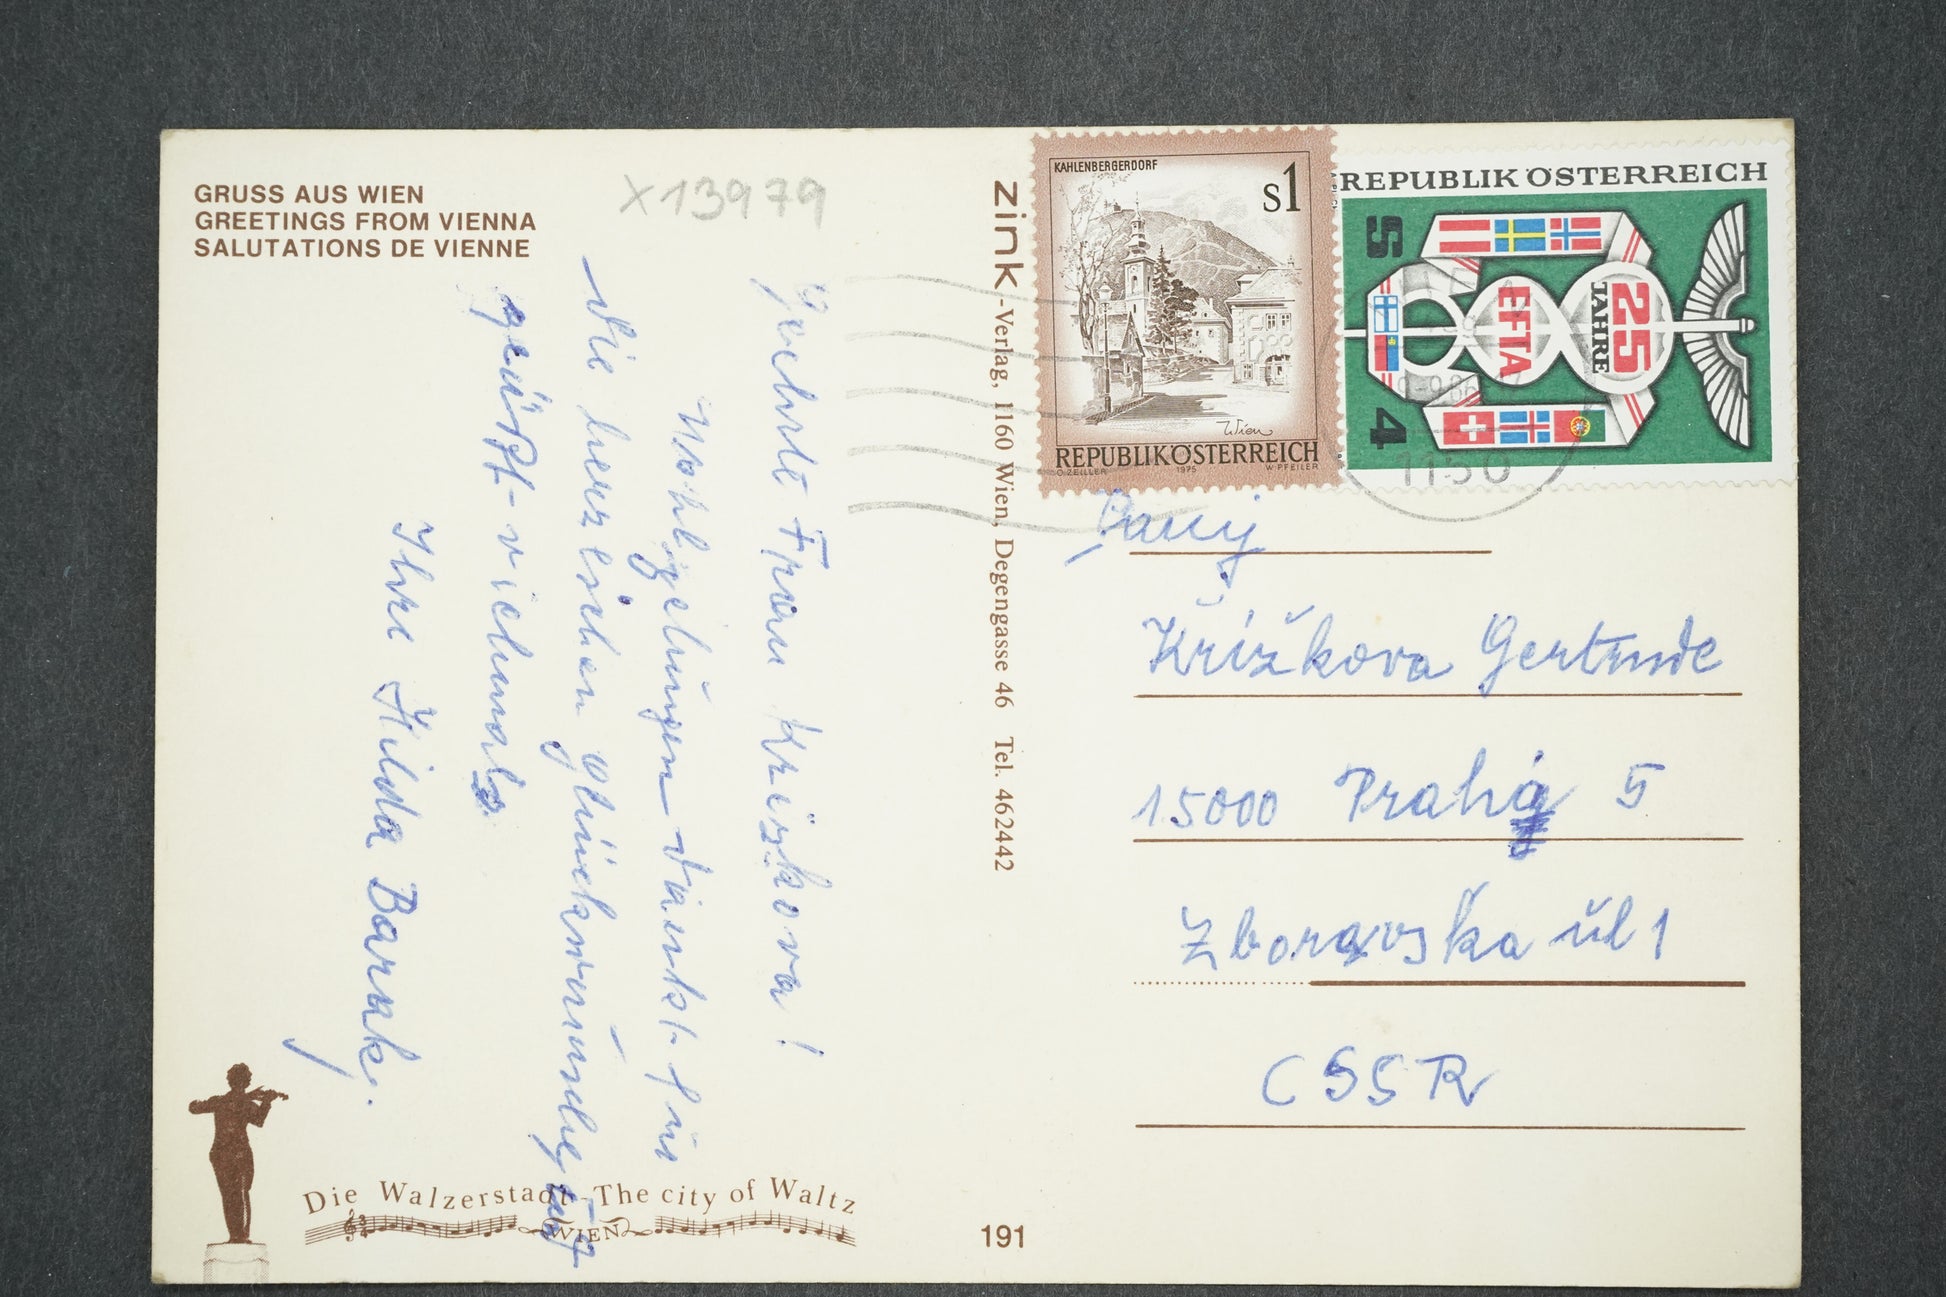 GRUSS AUS WIEN
GREETINGS FROM VIENNA
SALUTATIONS DE VIENNE
X13979
Geehrte Frau Križkova!
Wohlgelungen Dankt für
die herzlichen glückwünsche
grüßt vielmals
Ihre Hilda Barak.
Die Walzerstadt - The city of Waltz
WIEN
191
zink-Verlag, 1160 Wien, Degengasse 46 Tel. 462442
KAHLENBERGERDORF
S1
Wien
REPUBLIK ÖSTERREICH
O. ZEILLER 1975 W. PFEILER
REPUBLIK ÖSTERREICH
S 4
25 JAHRE
EFTA
1150
Křížkova Gertrude
15000 Praha 5
Zboravska ul 1
CSSR